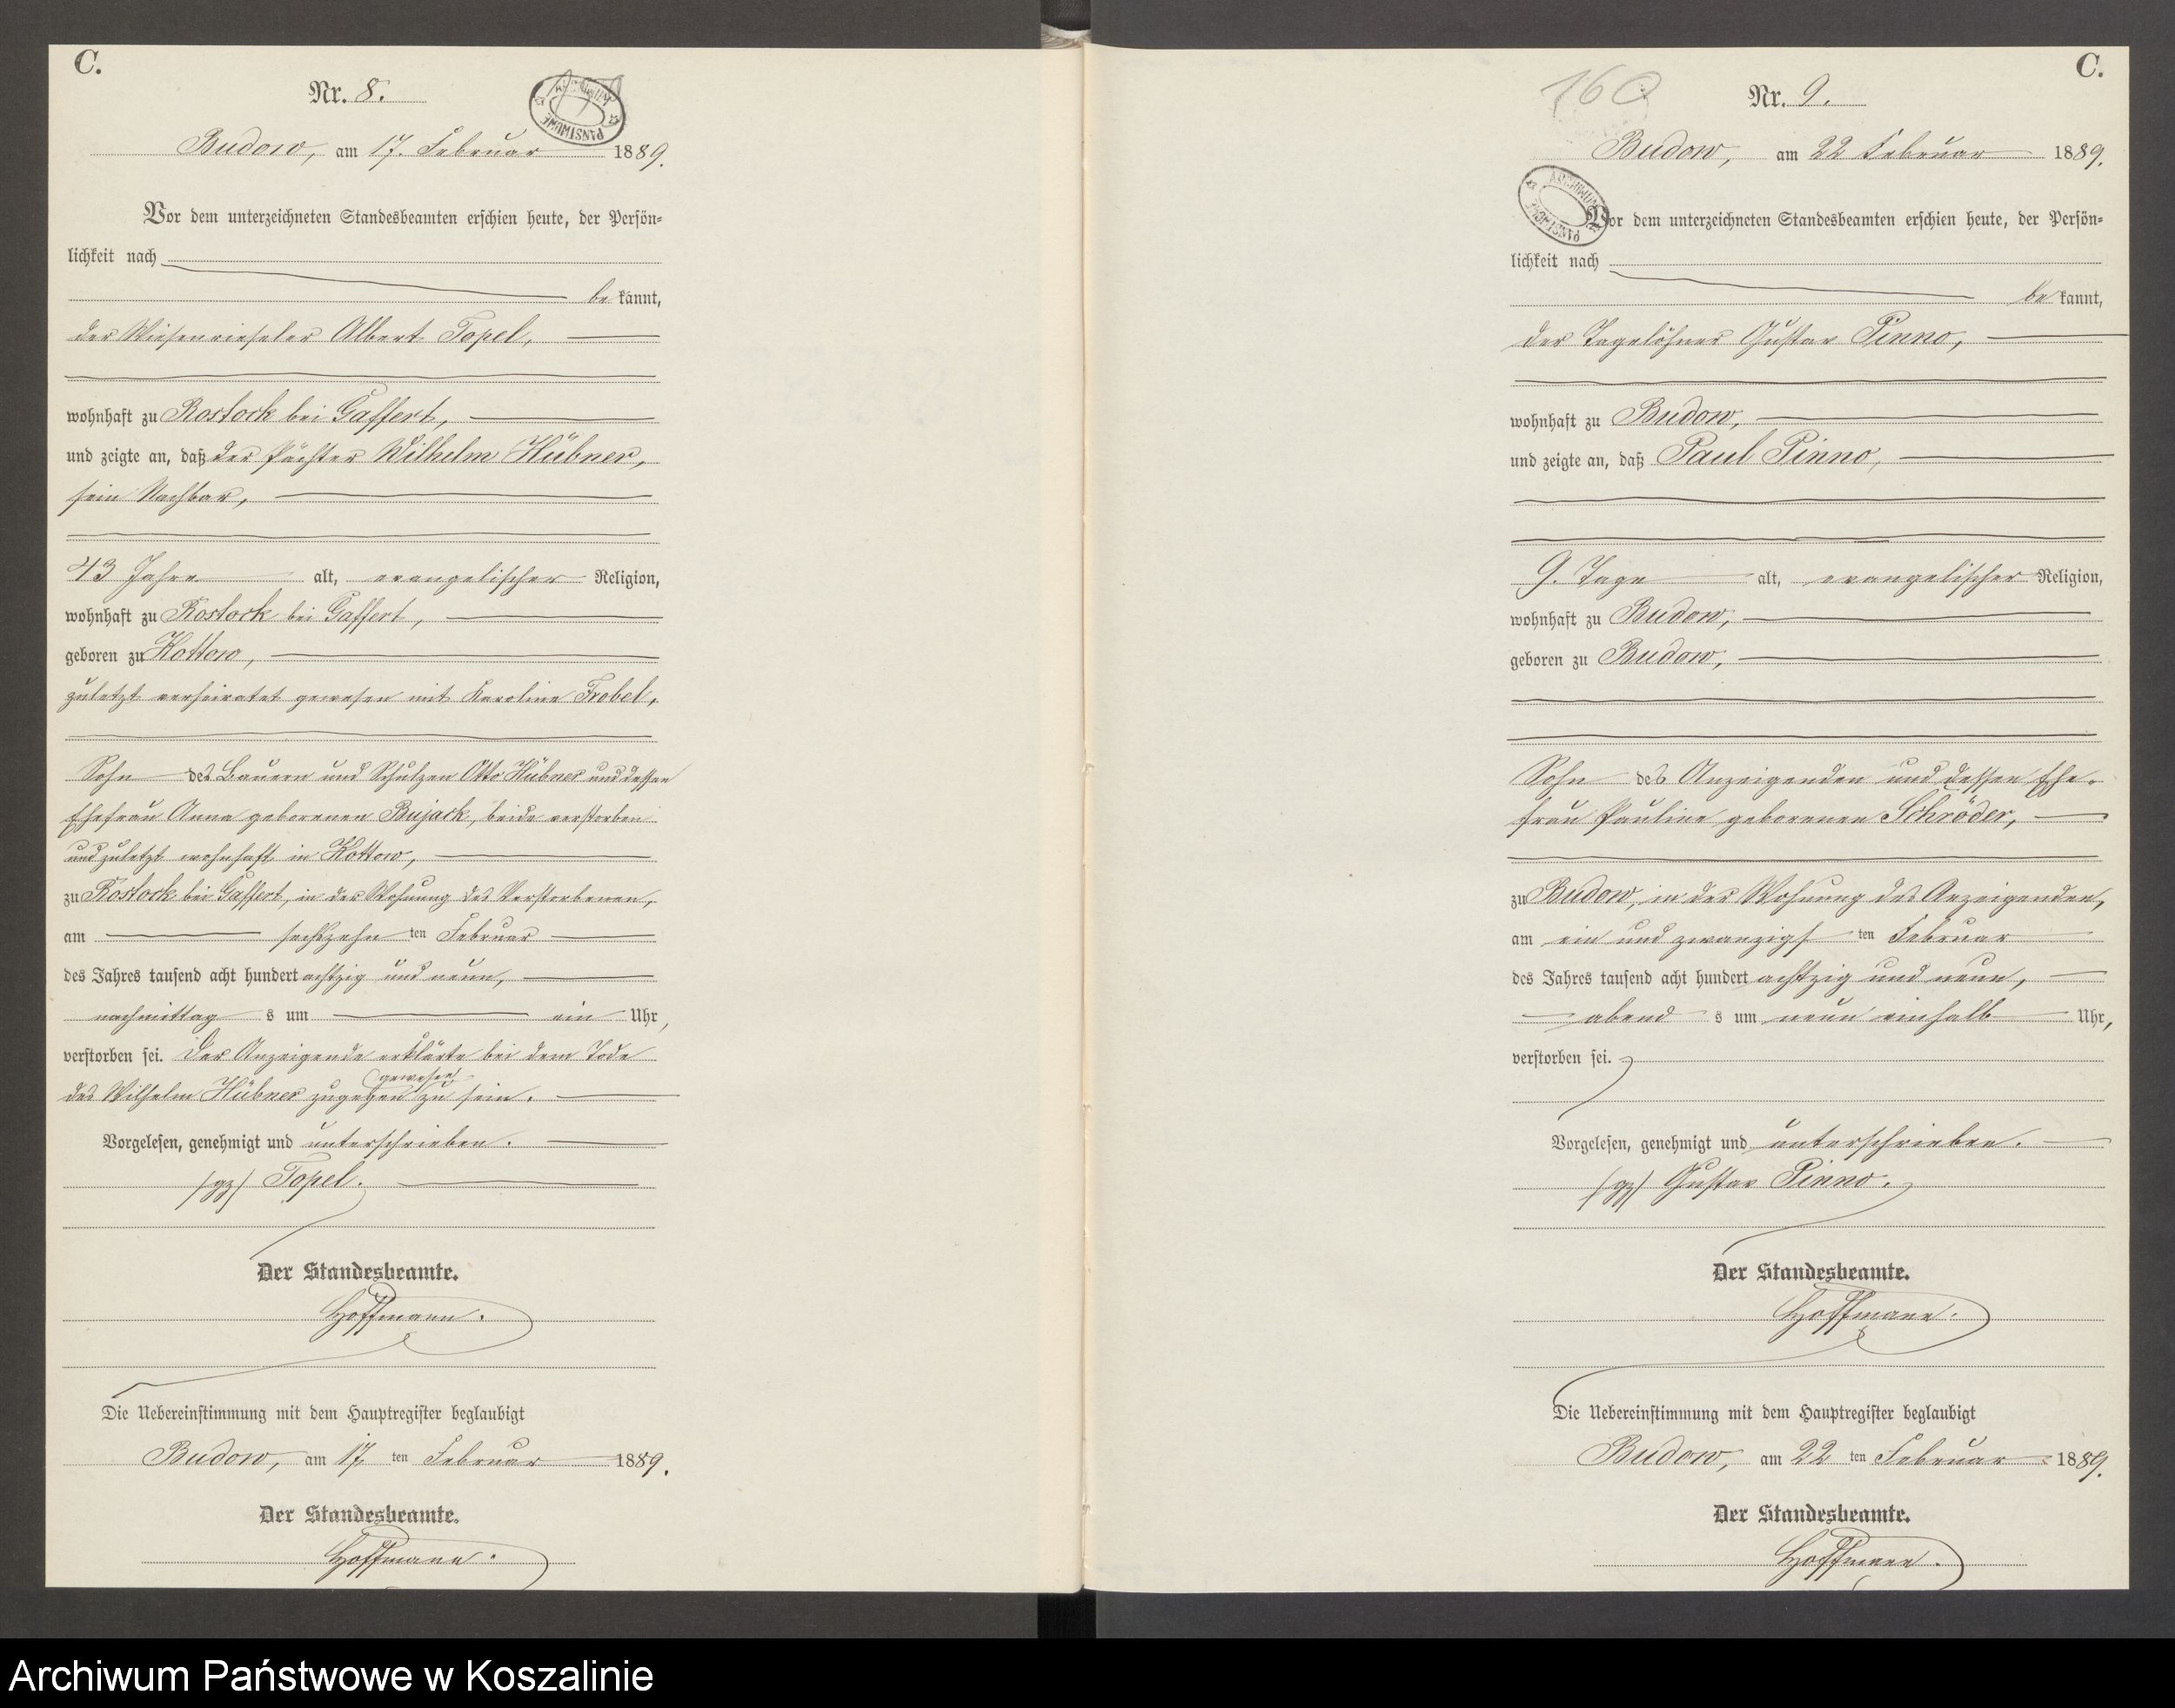 C.
Nr. 8.
ARCHIWUM PAŃSTWOWE
Budow, am 17. Februar 1889.
Vor dem unterzeichneten Standesbeamten erschien heute, der Persön-
lichkeit nach
be kannt,
der Wiesenrieseler Albert Topel,
wohnhaft zu Rostock bei Gaffert,
und zeigte an, daß der Pächter Wilhelm Hübner,
sein Nachbar,
43 Jahre alt, evangelischer Religion,
wohnhaft zu Rostock bei Gaffert,
geboren zu Kottow,
zuletzt verheiratet gewesen mit Karoline Frobel,
Sohn des Bauern und Schulzen Otto Hübner und dessen
Ehefrau Anna geborenen Bujack, beide verstorben
und zuletzt wohnhaft in Kottow,
zu Rostock bei Gaffert, in der Wohnung des Verstorbenen,
am sechszehn ten Februar
des Jahres tausend acht hundert achtzig und neun,
nachmittag s um ein Uhr,
verstorben sei. Der Anzeigende erklärte bei dem Tode
des Wilhelm Hübner zugegen gewesen zu sein.
Vorgelesen, genehmigt und unterschrieben.
(gz) Topel.
Der Standesbeamte.
Hoffmann.
Die Uebereinstimmung mit dem Hauptregister beglaubigt
Budow, am 17 ten Februar 1889.
Der Standesbeamte.
Hoffmann.
C.
160
Nr. 9.
Budow, am 22 Februar 1889.
ARCHIWUM PAŃSTWOWE
Vor dem unterzeichneten Standesbeamten erschien heute, der Persön-
lichkeit nach
be kannt,
der Tagelöhner Gustav Pinno,
wohnhaft zu Budow,
und zeigte an, daß Paul Pinno,
9. Tage alt, evangelischer Religion,
wohnhaft zu Budow,
geboren zu Budow,
Sohn des Anzeigenden und dessen Ehe-
frau Pauline geborenen Schröder,
zu Budow, in der Wohnung des Anzeigenden,
am ein und zwanzigs ten Februar
des Jahres tausend acht hundert achtzig und neun,
abend s um neun einhalb Uhr,
verstorben sei.
Vorgelesen, genehmigt und unterschrieben.
(gz) Gustav Pinno.
Der Standesbeamte.
Hoffmann.
Die Uebereinstimmung mit dem Hauptregister beglaubigt
Budow, am 22 ten Februar 1889.
Der Standesbeamte.
Hoffmann.
Archiwum Państwowe w Koszalinie